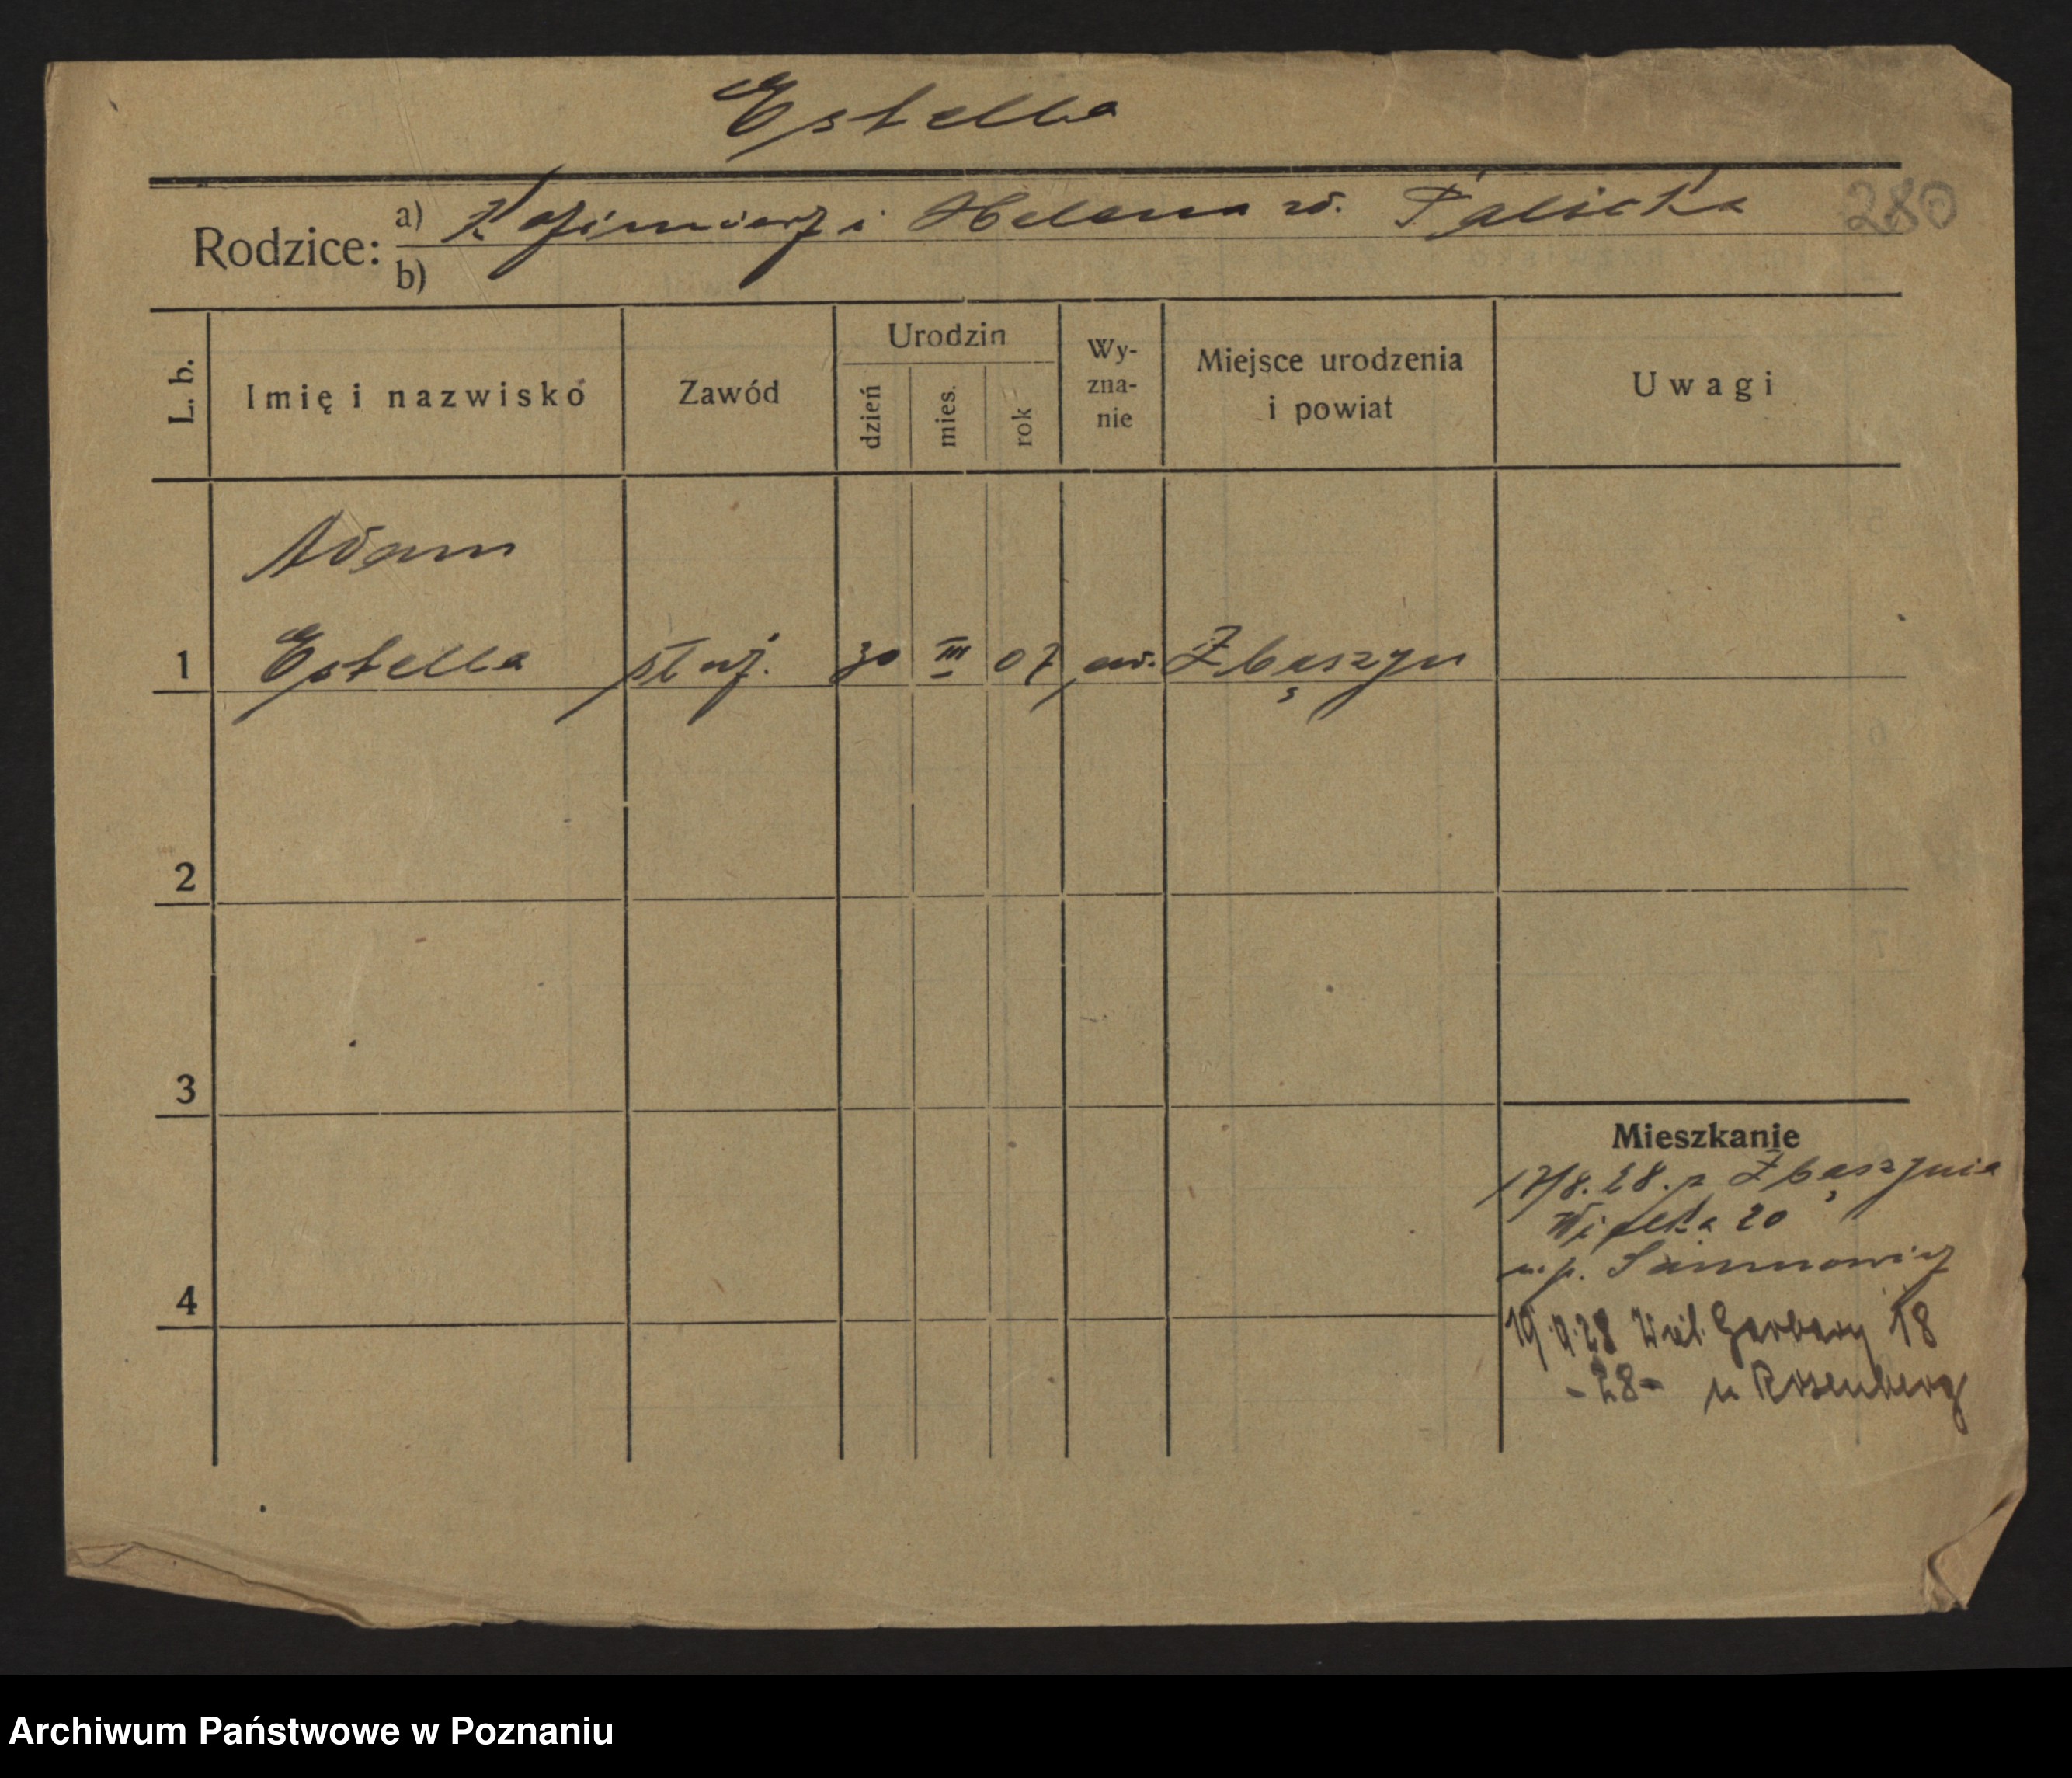 Estella
Rodzice: a) Kazimierz i Helena zd. Palicka
280
b)
L. b. Imię i nazwisko Zawód Urodzin dzień mies. rok Wyznanie Miejsce urodzenia i powiat Uwagi
Adam
1 Estella 30 III 07 Zbąszyn
2
3
Mieszkanie
17/8. 28. z Zbąszynia
Wielka 20
u p.
4
19 28 Garbary 18
-28- u Rosenberg
Archiwum Państwowe w Poznaniu